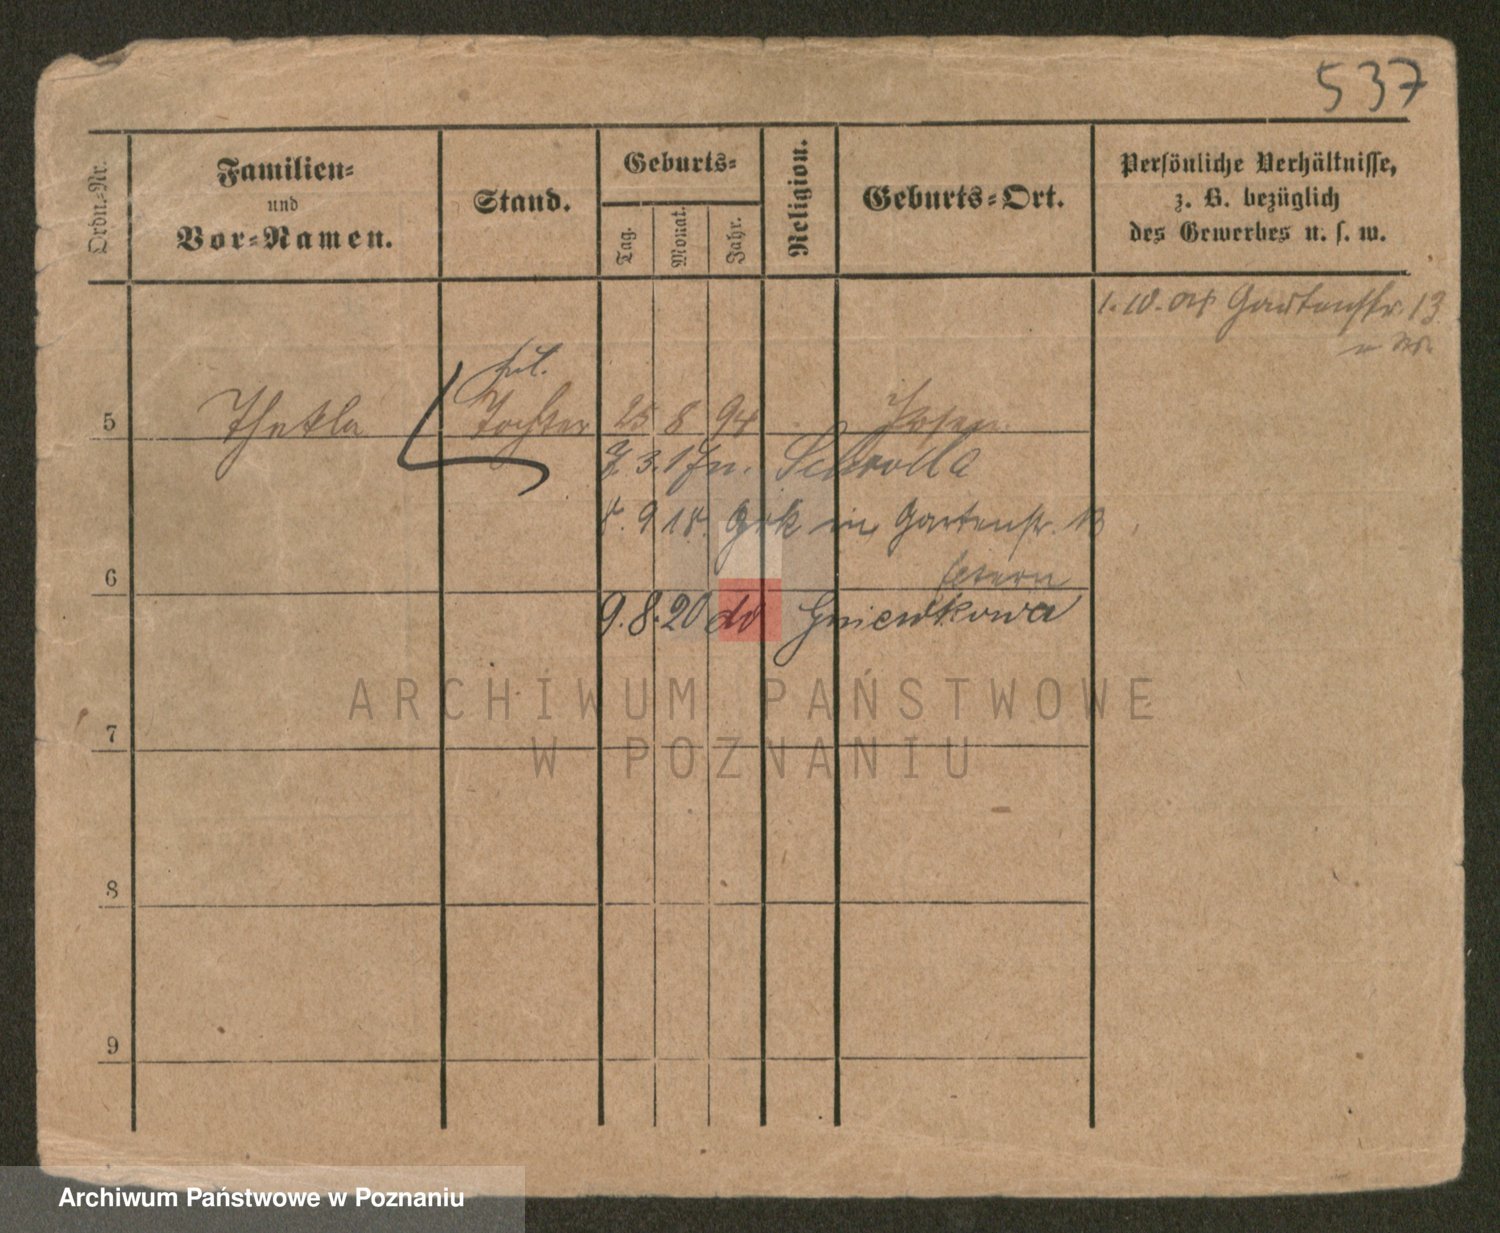 537
Ordn.-Nr.
Familien-
und
Vor-Namen.
Stand.
Geburts-
Tag.
Monat.
Jahr.
Religion.
Geburts-Ort.
Persönliche Verhältnisse,
z. B. bezüglich
des Gewerbes u. s. w.
1. 10. Gartenstr. 13
5 Thekla Tochter 25 8 94 Posen
7. 3. 17 n. Schrolla
8. 9 18. in Gartenstr. 13
6
9. 8. 20 do Gniewkowa
ARCHIWUM PAŃSTWOWE
W POZNANIU
7
8
9
Archiwum Państwowe w Poznaniu